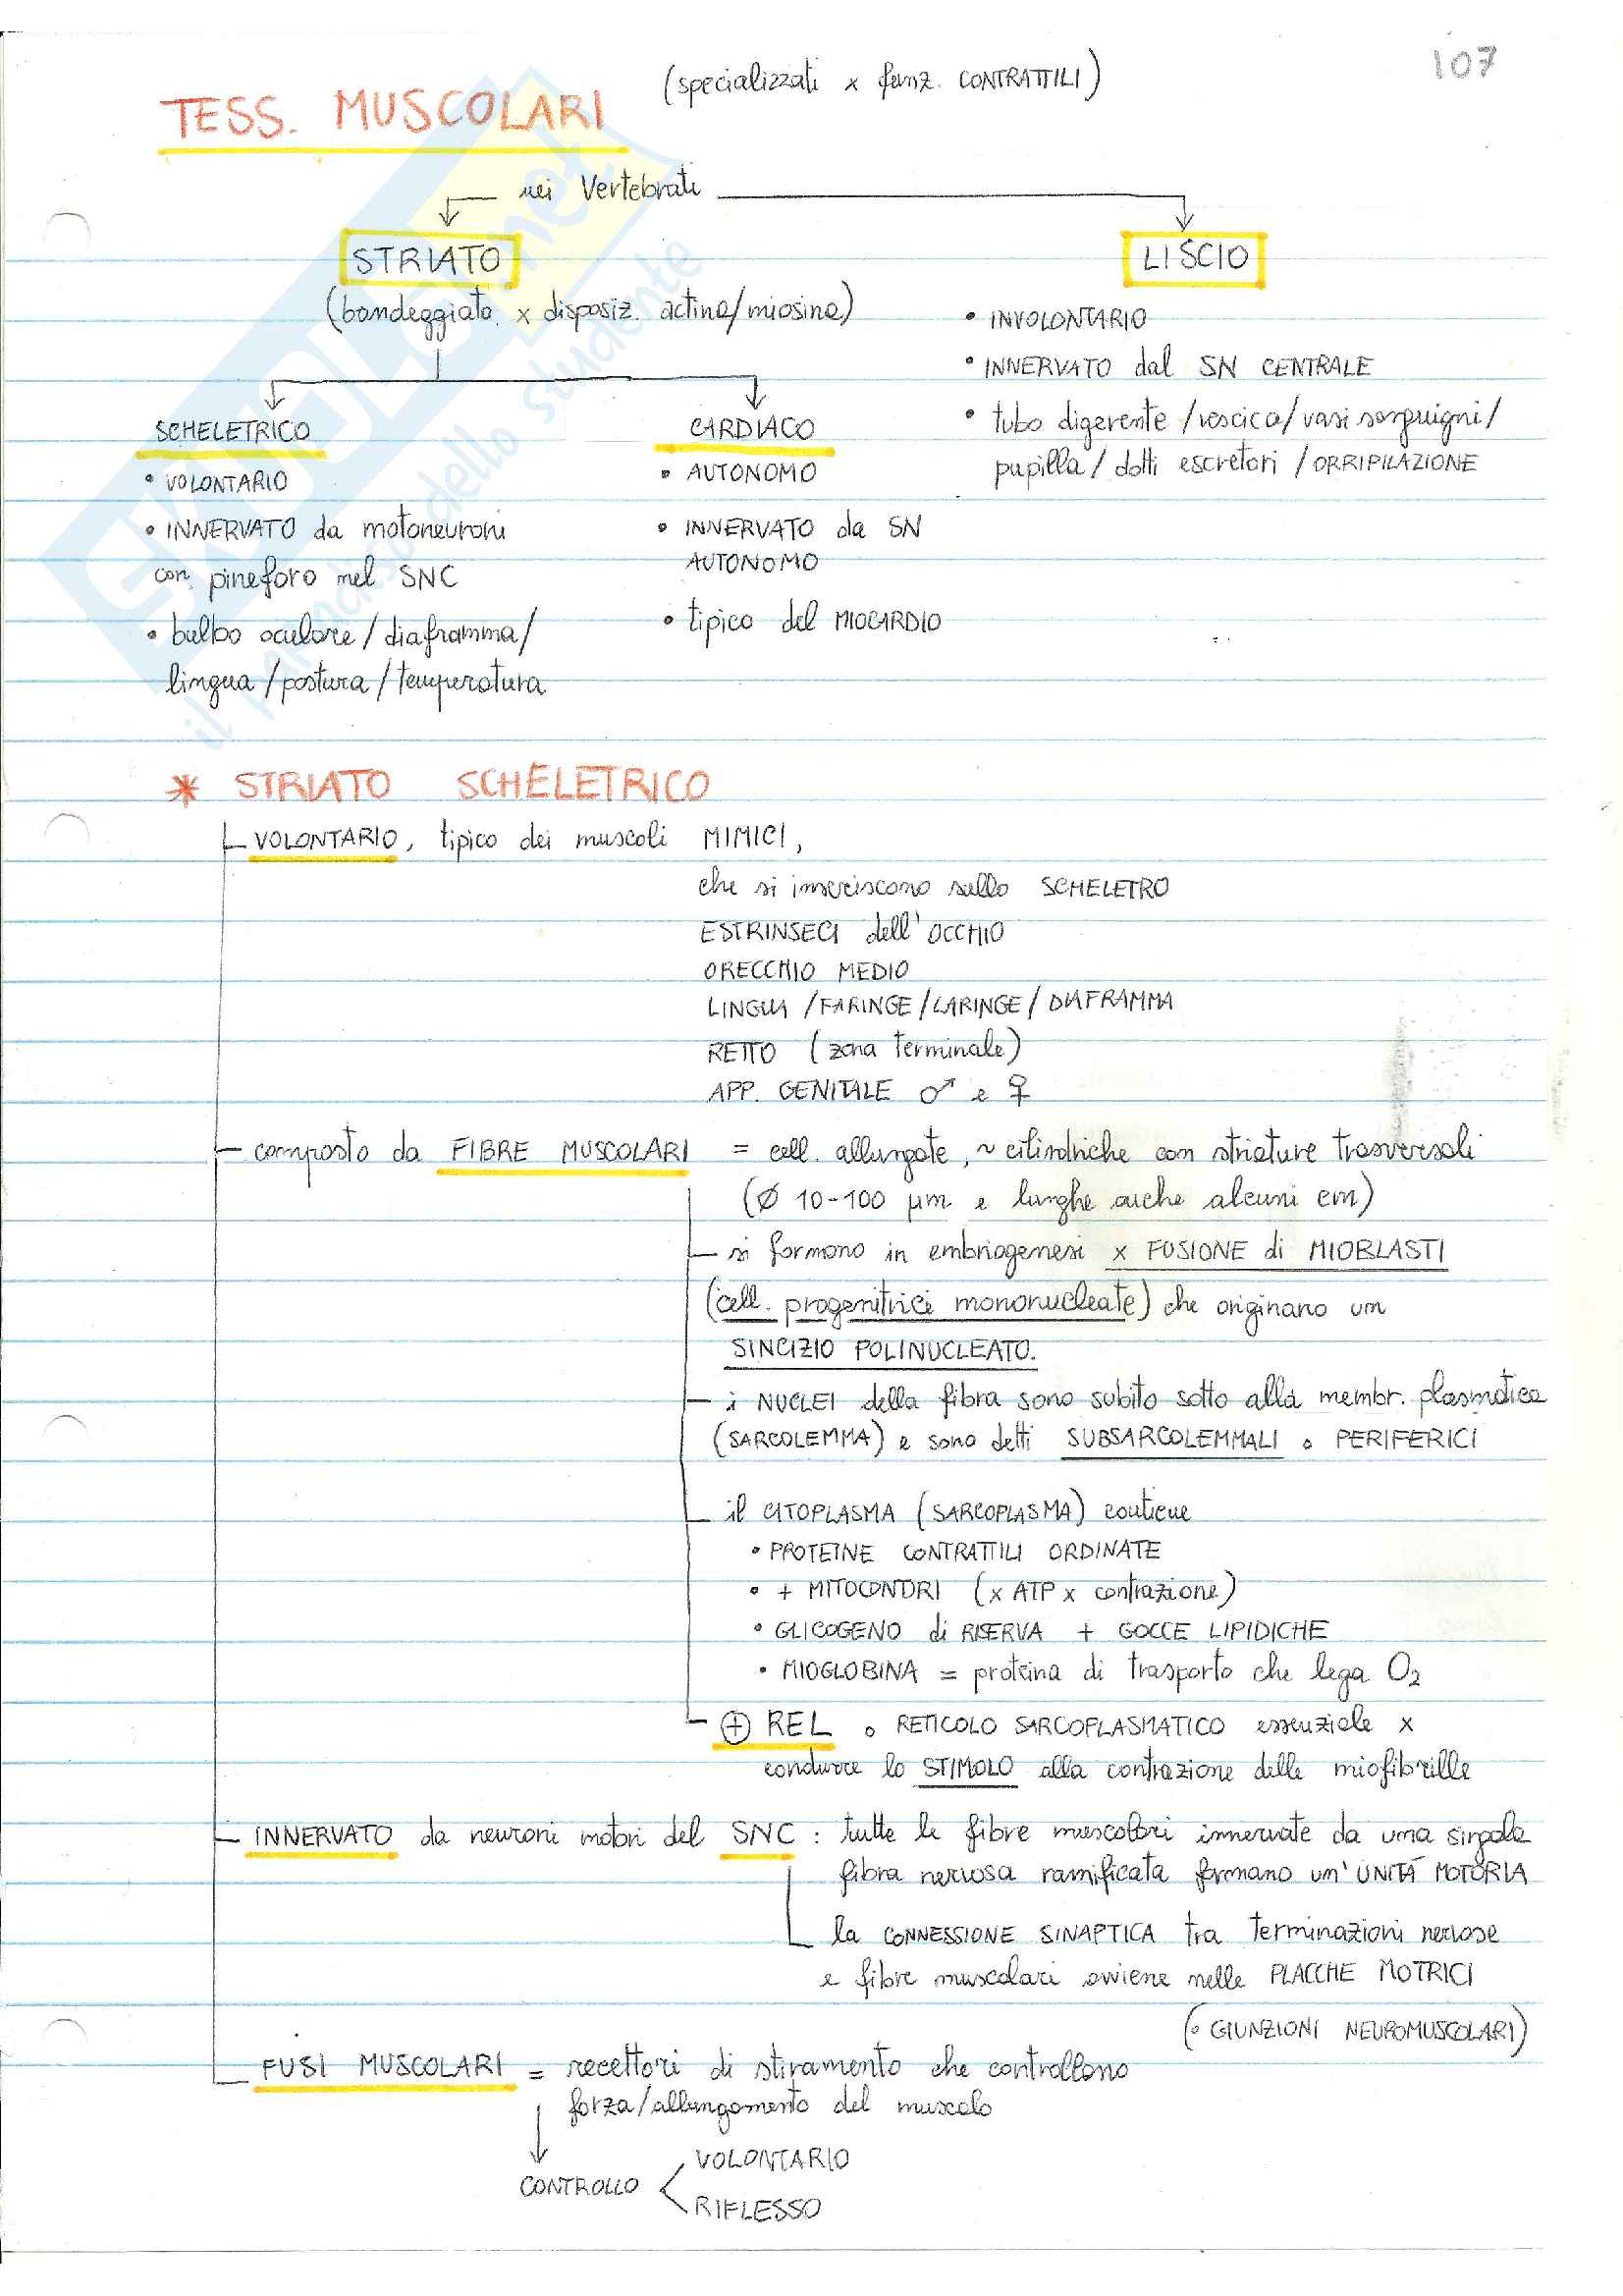 107
TESS. MUSCOLARI (specializzati x funz. CONTRATTILI)
nei Vertebrati
STRIATO
(bandeggiato x disposiz. actina/miosina)
SCHELETRICO
• VOLONTARIO
• INNERVATO da motoneuroni
con pineforo nel SNC
• bulbo oculare/diaframma/
lingua/postura/temperatura
CARDIACO
• AUTONOMO
• INNERVATO da SN
AUTONOMO
• tipico del MIOCARDIO
LISCIO
• INVOLONTARIO
• INNERVATO dal SN CENTRALE
• tubo digerente/vescica/vasi sanguigni/
pupilla/dotti escretori/ORRIPILAZIONE
* STRIATO SCHELETRICO
VOLONTARIO, tipico dei muscoli MIMICI,
che si inseriscono sullo SCHELETRO
ESTRINSECI dell'OCCHIO
ORECCHIO MEDIO
LINGUA/FARINGE/LARINGE/DIAFRAMMA
RETTO (zona terminale)
APP. GENITALE ♂ e ♀
composto da FIBRE MUSCOLARI = cell. allungate, ~ cilindriche con striature trasversali
(Ø 10-100 μm e lunghe anche alcuni cm)
si formano in embriogenesi x FUSIONE di MIOBLASTI
(cell. progenitrici mononucleate) che originano un
SINCIZIO POLINUCLEATO.
i NUCLEI della fibra sono subito sotto alla membr. plasmatica
(SARCOLEMMA) e sono detti SUBSARCOLEMMALI o PERIFERICI
il CITOPLASMA (SARCOPLASMA) contiene
• PROTEINE CONTRATTILI ORDINATE
• + MITOCONDRI (x ATP x contrazione)
• GLICOGENO di RISERVA + GOCCE LIPIDICHE
• MIOGLOBINA = proteina di trasporto che lega O₂
⊕ REL o RETICOLO SARCOPLASMATICO essenziale x
condurre lo STIMOLO alla contrazione delle miofibrille
INNERVATO da neuroni motori del SNC : tutte le fibre muscolari innervate da una singola
fibra nervosa ramificata formano un'UNITÀ MOTORIA
la CONNESSIONE SINAPTICA tra terminazioni nervose
e fibre muscolari avviene nelle PLACCHE MOTRICI
(o GIUNZIONI NEUROMUSCOLARI)
FUSI MUSCOLARI = recettori di stiramento che controllano
forza/allungamento del muscolo
CONTROLLO
VOLONTARIO
RIFLESSO
SKUOLA.net
il paradiso dello studente